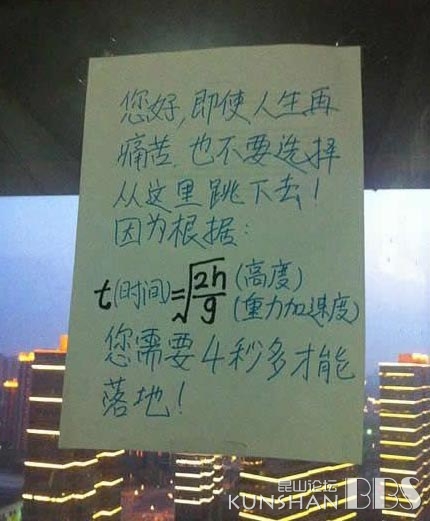 您好,即使人生再
痛苦,也不要选择
从这里跳下去!
因为根据:
t(时间)=√2h/g (高度)
(重力加速度)
您需要4秒多才能
落地!
昆山论坛
KUNSHAN BBS